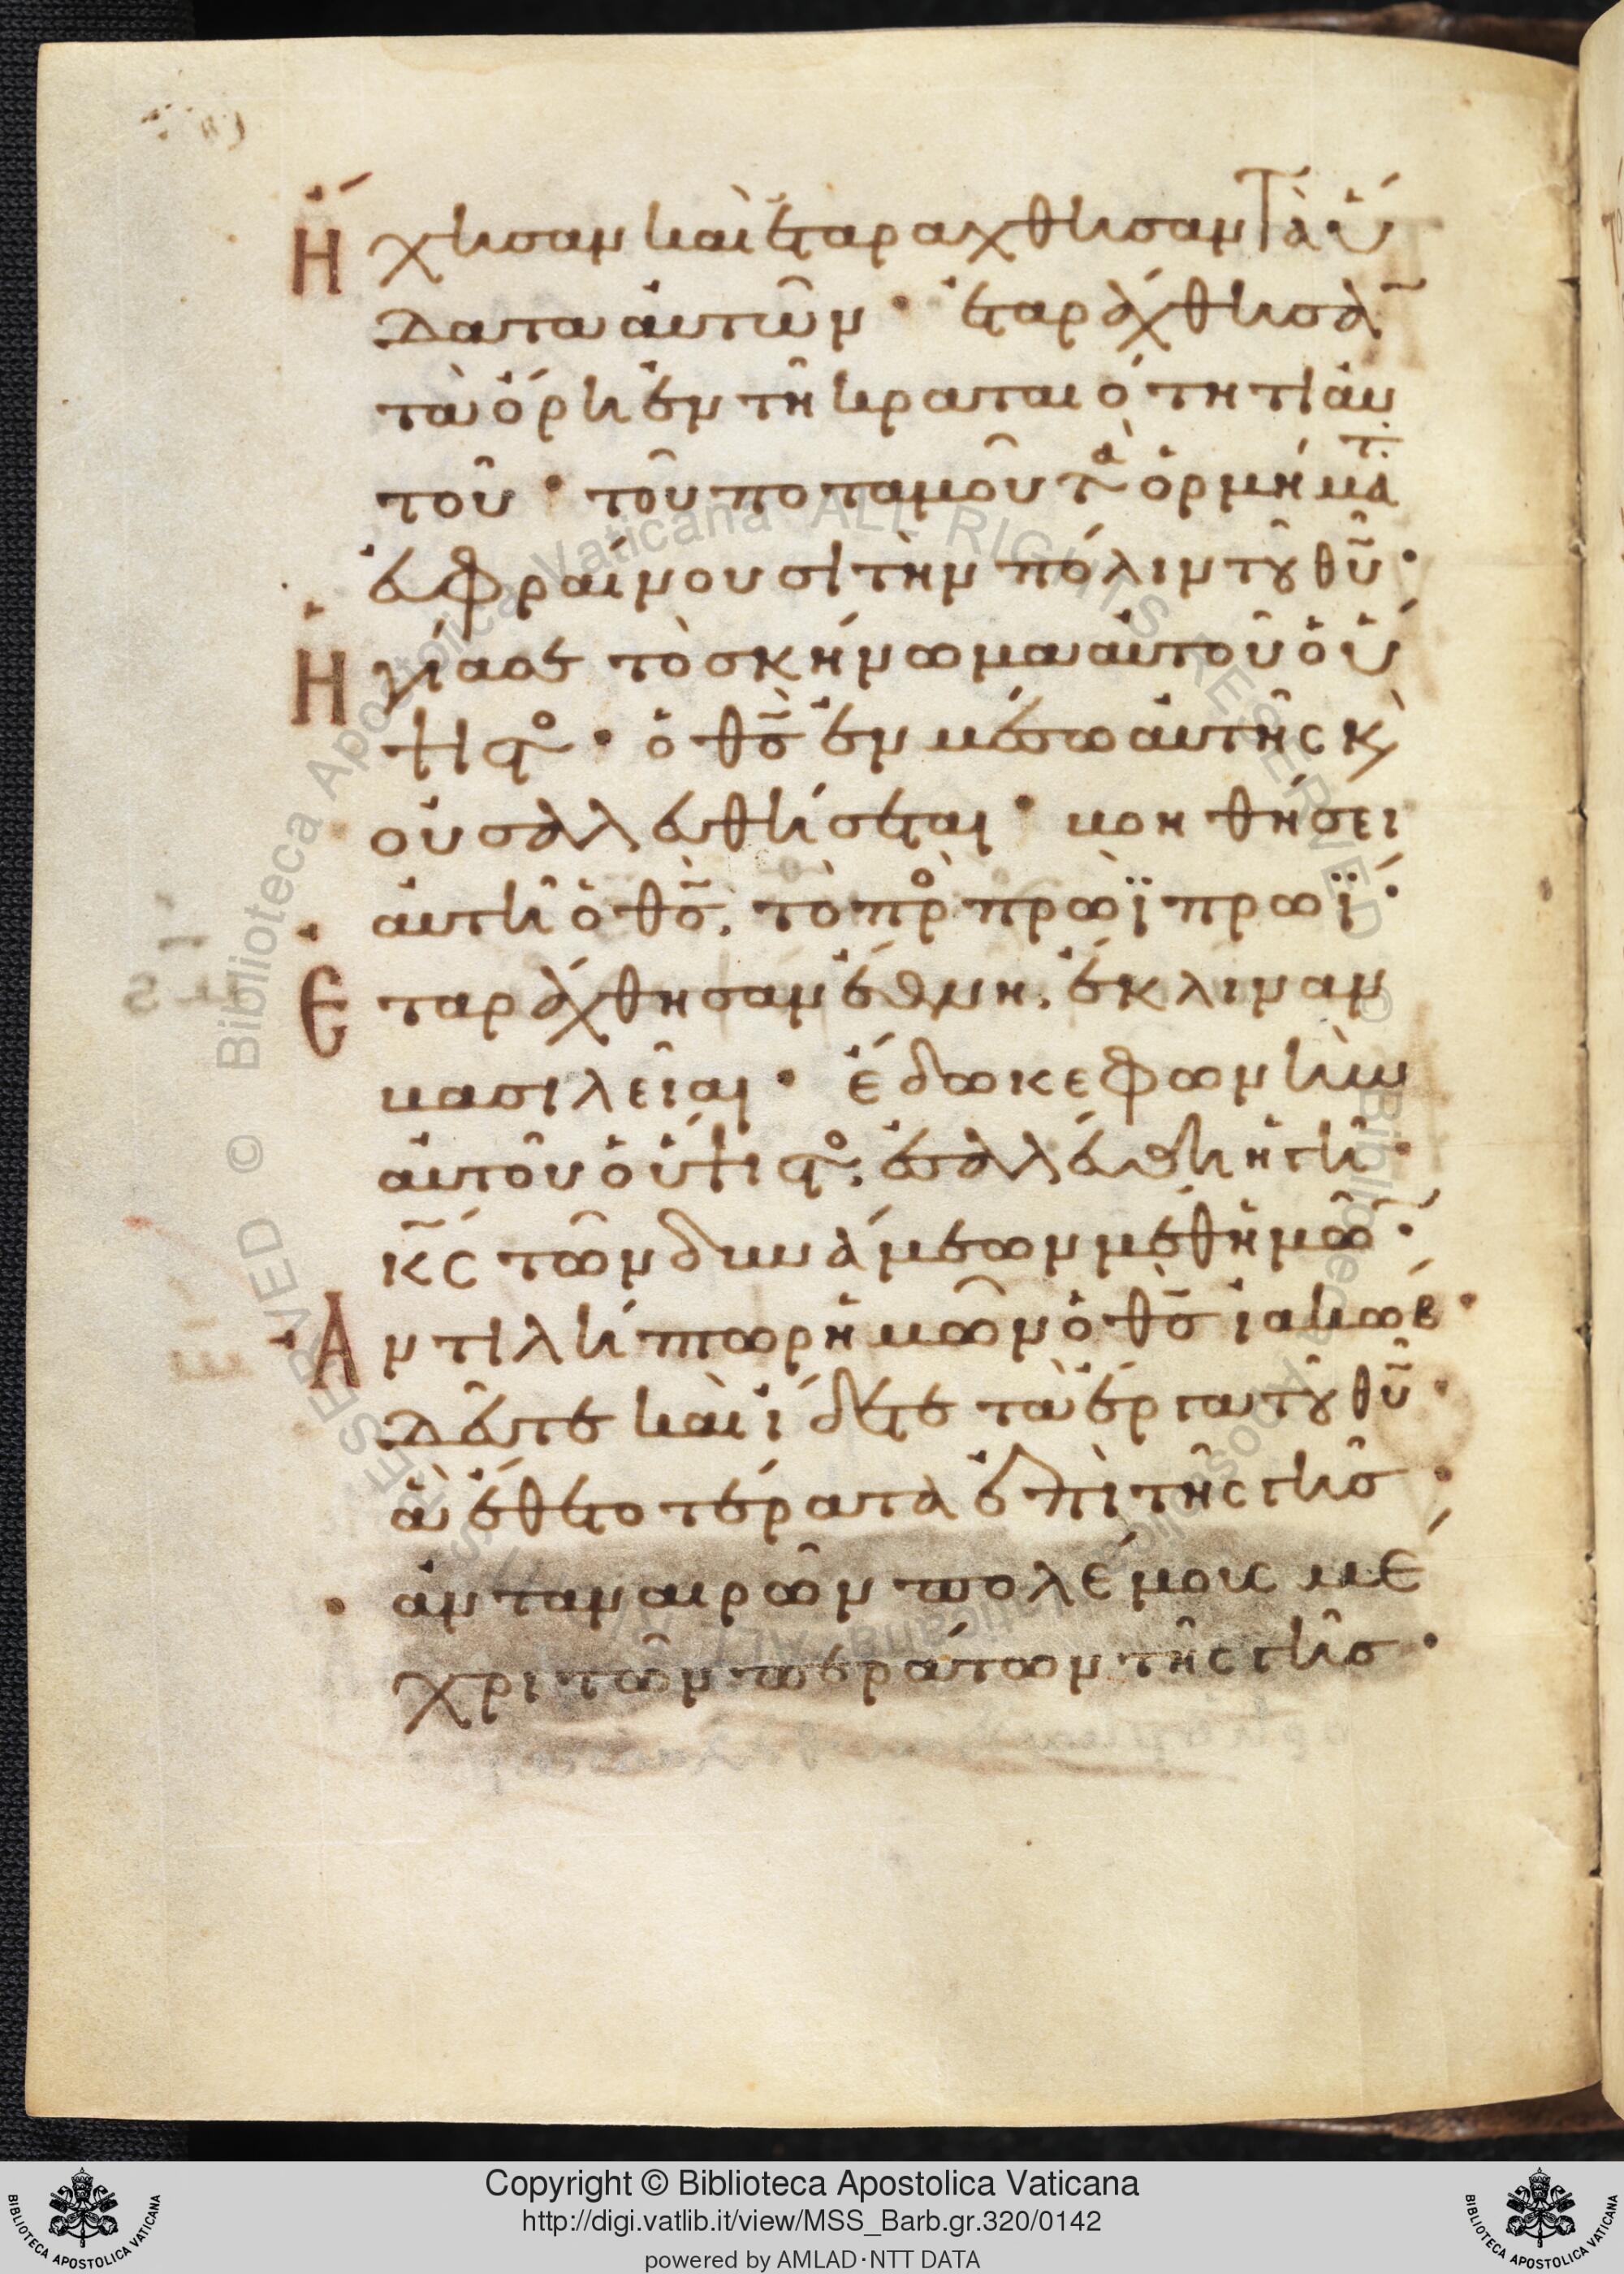 Ἤχησαν καὶ ἐταραχθησαν τὰ ὕ
δατα αὐτῶν · ἐταράχθησα̃
τὰ ὄρη ἐν τῆ κραταιότητι αὐ
τοῦ · τοῦ ποταμοῦ τὰ ὁρμήματ̅
ἐυφραίνουσι τὴν πόλιν τοῦ θῦ ·
Ἡγίασε τὸ σκήνωμα αὐτοῦ ὁ ὕ
ψιστος · ὁ θς̅ ἐν μέσω αὐτῆς κ̀
οὐ σαλευθήσεται · βοηθήσει
αὐτῆ ὁ θς̅. τὸ πρὸς πρωῒ πρωΐ ·
Ἐταράχθησαν ἔθνη. ἔκλιναν
βασιλεῖαι · ἔδωκε φωνὴν
αὐτοῦ ὁ ὕψιστος, ἐσαλεύθη ἡ γῆ ·
κς̅ τῶν δυνάμεων μεθ ἡμῶ̃ ·
Ἀντιλήπτωρ ἡμῶν ὁ θς̅ ἰακώβ ·
δεῦτε καὶ ἴδετε τὰ ἔργα τοῦ θῦ ·
ἃ ἔθετο τέρατα ἐπὶ τῆς γῆς ·
· ἀνταναιρῶν πολέμους μέ
χρι τῶν περάτων τῆς γῆς ·
Copyright © Biblioteca Apostolica Vaticana
http://digi.vatlib.it/view/MSS_Barb.gr.320/0142
powered by AMLAD·NTT DATA